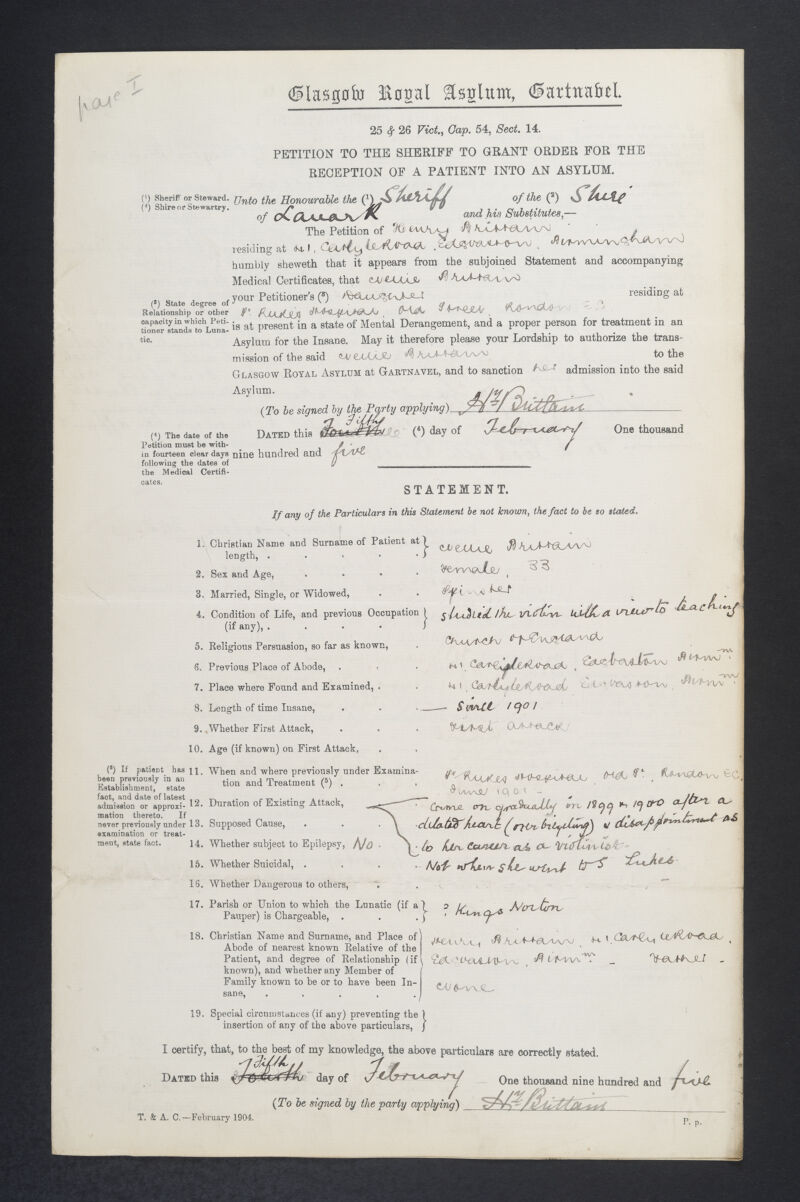 page I
Glasgow Royal Asylum, Gartnabel.
25 & 26 Vict., Cap. 54, Sect. 14.
PETITION TO THE SHERIFF TO GRANT ORDER FOR THE
RECEPTION OF A PATIENT INTO AN ASYLUM.
(¹) Sheriff or Steward. Unto the Honourable the (¹) Sheriff of the (²) Shire
(²) Shire or Stewartry. of Lanark and his Substitutes,—
The Petition of Henry Brittain
residing at 41, Carlyle Road, Edgbaston, Birmingham
humbly sheweth that it appears from the subjoined Statement and accompanying
Medical Certificates, that Nellie Brittain
your Petitioner's (³) Daughter residing at
St Lukes Hospital, Old Street, London EC
is at present in a state of Mental Derangement, and a proper person for treatment in an
Asylum for the Insane. May it therefore please your Lordship to authorize the trans-
mission of the said Nellie Brittain to the
GLASGOW ROYAL ASYLUM AT GARTNAVEL, and to sanction her admission into the said
Asylum.
(³) State degree of
Relationship or other
capacity in which Peti-
tioner stands to Luna-
tic.
(To be signed by the Party applying) Hy Brittain
Fifth
DATED this Fourth (⁴) day of February One thousand
nine hundred and five
(⁴) The date of the
Petition must be with-
in fourteen clear days
following the dates of
the Medical Certifi-
cates.
STATEMENT.
If any of the Particulars in this Statement be not known, the fact to be so stated.
1. Christian Name and Surname of Patient at
length, . . . . . Nellie Brittain
2. Sex and Age, . . . . Female, 33
3. Married, Single, or Widowed, . . Spinster
4. Condition of Life, and previous Occupation
(if any), . . . . . studied the violin with a view to teaching
5. Religious Persuasion, so far as known, . Church of England
6. Previous Place of Abode, . . . 41, Carlyle Road, Edgbaston Birmm.
7. Place where Found and Examined, . . 41, Carlyle Road Edgbaston, Birmm.
8. Length of time Insane, . . . — Since 1901
9. Whether First Attack, . . . First attack
10. Age (if known) on First Attack, . .
11. When and where previously under Examina-
tion and Treatment (⁵) . . . St Lukes Hospital, Old St., London EC,
June 1901 -
(⁵) If patient has
been previously in an
Establishment, state
fact, and date of latest
admission or approxi-
mation thereto. If
never previously under
examination or treat-
ment, state fact.
12. Duration of Existing Attack, Came on gradually in 1899 & 1900 after a
13. Supposed Cause, . . . . dilated heart (over bicycling) & disappointment as
14. Whether subject to Epilepsy, No . to her career as a violinist -
15. Whether Suicidal, . . . . Not when she went to S Lukes
16. Whether Dangerous to others, . . —
17. Parish or Union to which the Lunatic (if a
Pauper) is Chargeable, . . . ? Kings Norton
18. Christian Name and Surname, and Place of
Abode of nearest known Relative of the
Patient, and degree of Relationship (if
known), and whether any Member of
Family known to be or to have been In-
sane, . . . . .
Henry Brittain, 41, Carlyle Road,
Edgbaston, Birmm. - Father -
None
19. Special circumstances (if any) preventing the
insertion of any of the above particulars,
I certify, that, to the best of my knowledge, the above particulars are correctly stated.
Fifth
DATED this Fourth day of February One thousand nine hundred and five
(To be signed by the party applying) Hy Brittain
T. & A. C.—February 1904.
P. p.